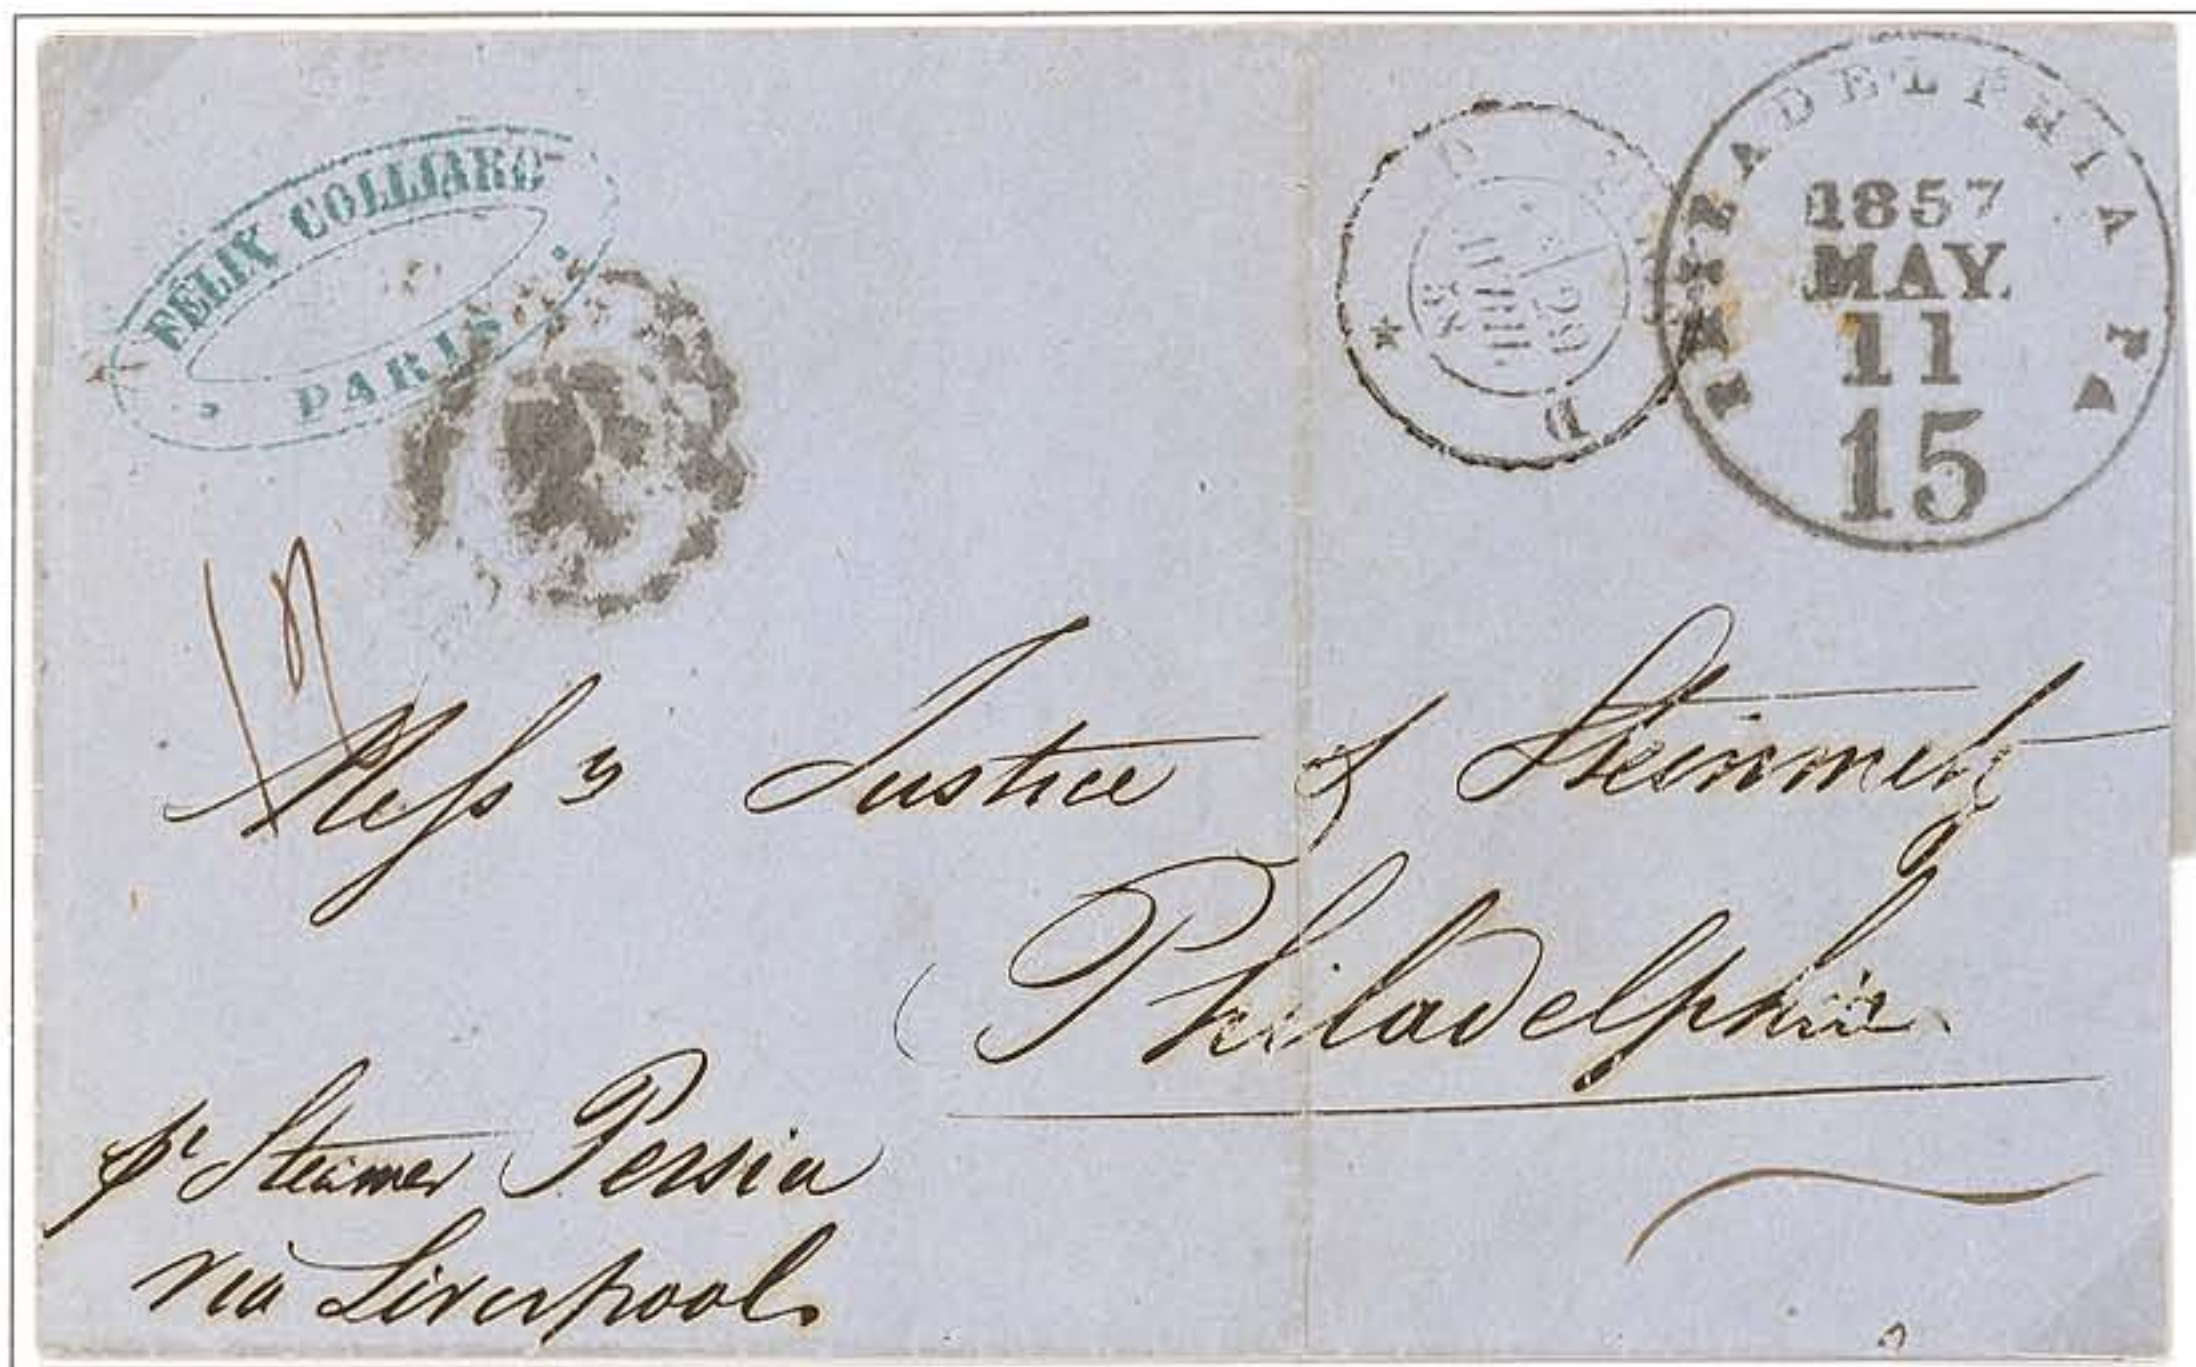 FELIX COLLIARD
PARIS
D
D
29
PHILADELPHIA PA
1857
MAY.
11
15
Mess rs Justice & Steinmetz
Philadelphia
pr Steamer Persia
via Liverpool.